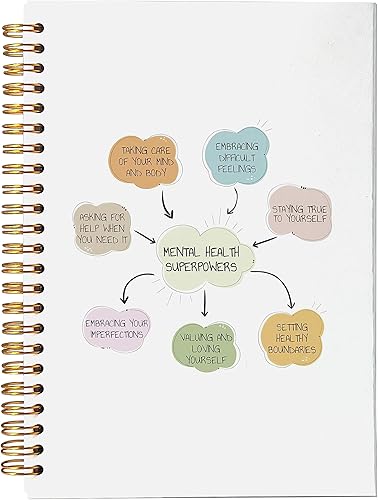 TAKING CARE
OF YOUR MIND
AND BODY
EMBRACING
DIFFICULT
FEELINGS
ASKING FOR
HELP WHEN
YOU NEED IT
STAYING TRUE
TO YOURSELF
MENTAL HEALTH
SUPERPOWERS
EMBRACING YOUR
IMPERFECTIONS
VALUING AND
LOVING
YOURSELF
SETTING
HEALTHY
BOUNDARIES